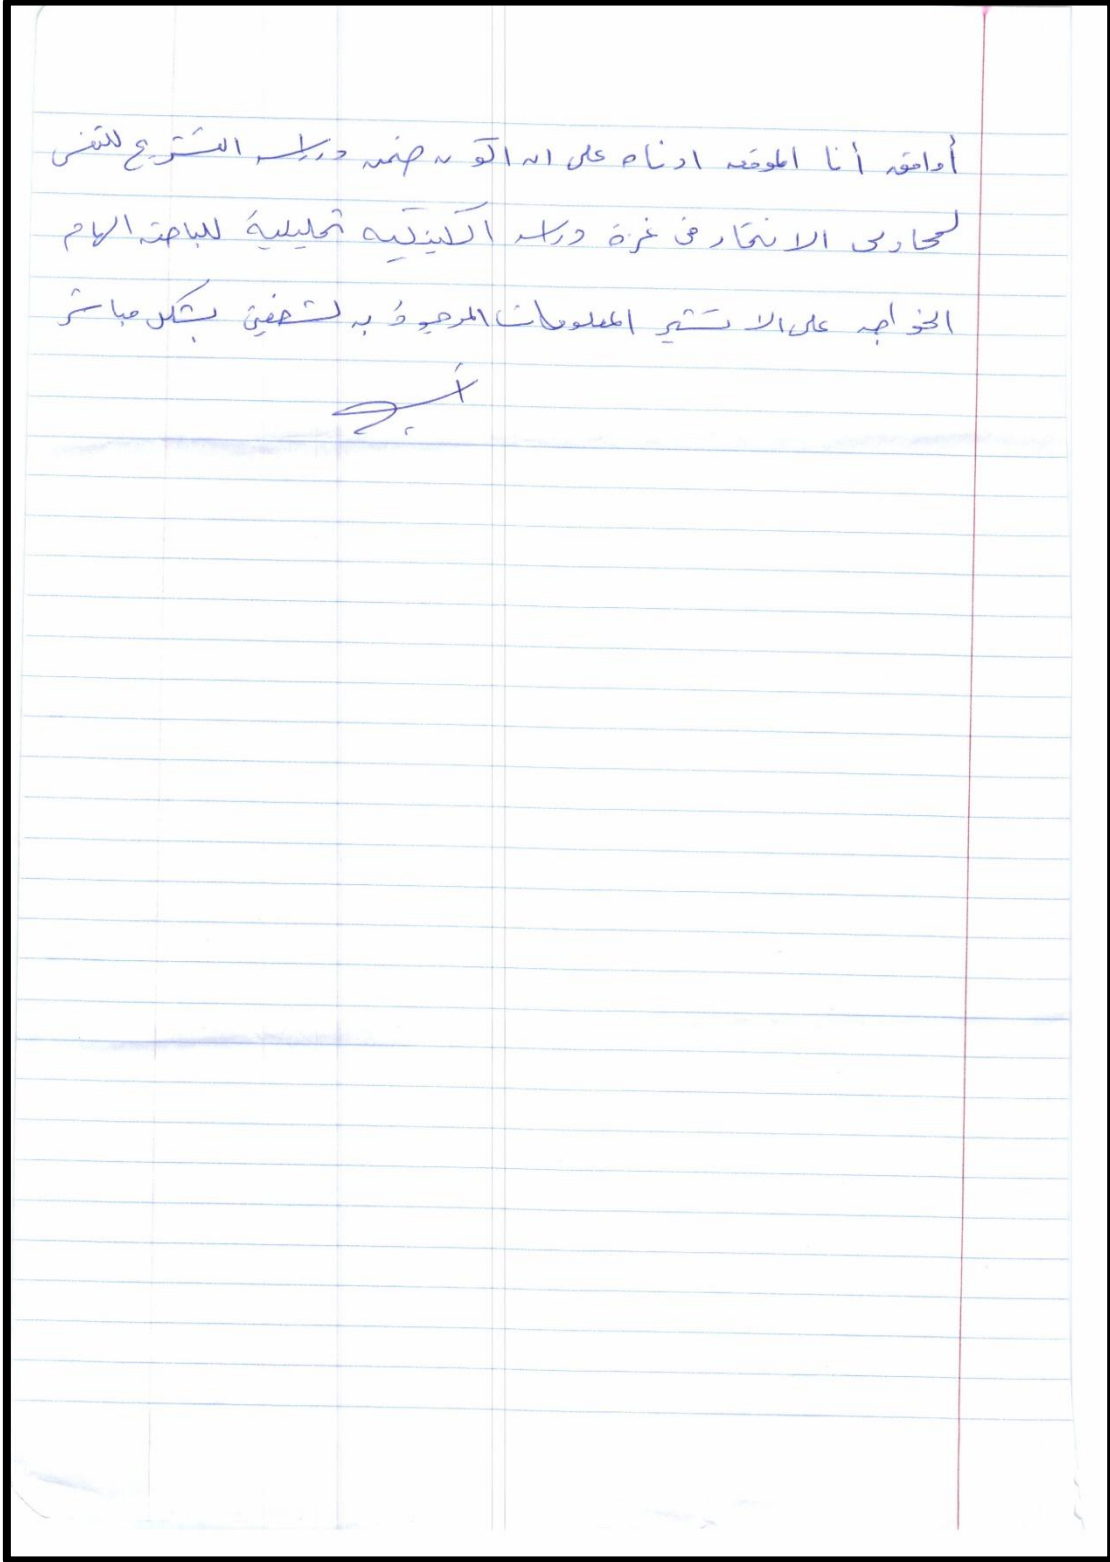 أوافق أنا الموقع ادناه على ان اكون ضمن دراسة التشريح للنفس
لمحاولى الانتحار فى غزة دراسة اكلينكيه تحليلية للباحثه الهام
الخواجه على الا تشير المعلومات الموجودة به لشخصيتى بشكل مباشر